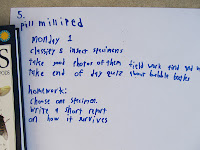 5.
pill milliped
Monday 1
classify 5 insect specimens
take good photos of them field work first
take end of day quiz about bubble tasks
homework:
choose one specimen.
write a short report
on how it survives